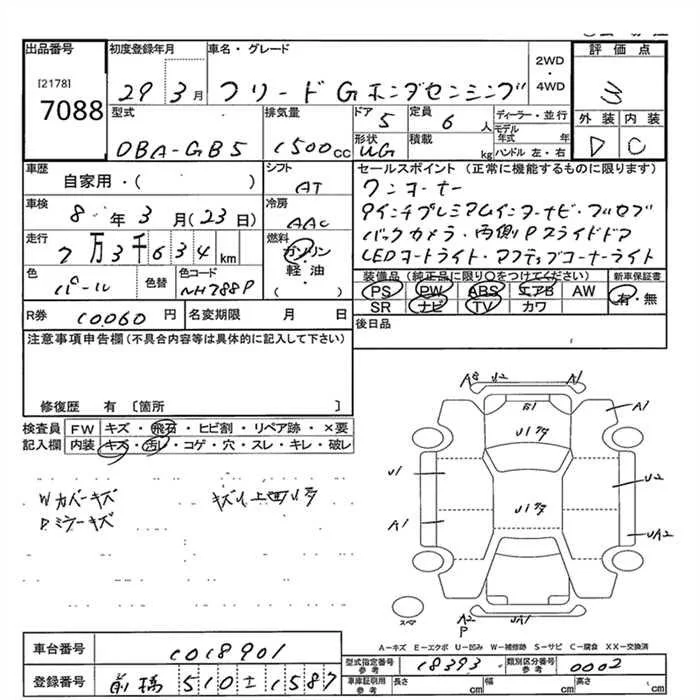 出品番号 初度登録年月 車名・グレード 2WD・4WD 評価点
[2178]
7088
29年3月 フリード G ホンダセンシング 3
型式 排気量 ドア 5 定員 6人 ディーラー・並行 外装 内装
DBA-GB5 1500cc 形状 UG 積載 kg モデル年式 年 ハンドル 左・右 D C
車歴 自家用・( ) シフト AT
セールスポイント (正常に機能するものに限ります)
ワンオーナー
車検 8年3月(23日) 冷房 AAC
9インチプレミアムインターナビ・フルセグ
バックカメラ・両側Pスライドドア
走行 7万3千634km 燃料 ガソリン・軽油・( )
LEDヘッドライト・アクティブコーナーライト
色 パール 色替 色コード NH788P
装備品 (純正品に限り○をつけてください) 新車保証書
PS PW ABS エアB AW 有・無
SR ナビ TV カワ
R券 10060円 名変期限 月 日 後日品
注意事項申告欄(不具合内容等は具体的に記入して下さい)
修復歴 有 [箇所 ]
検査員記入欄 FW キズ・飛石・ヒビ割・リペア跡・×要
内装 キズ・汚レ・コゲ・穴・スレ・キレ・破レ
Wカバーキズ
Dミラーキズ
U2 A1
A1
U1 U2
A1 UA2
スペア A2 P UA1
A-キズ E-エクボ U-凹み W-補修跡 S-サビ C-腐食 XX-交換済
車台番号 1018901
型式指定番号 参考 18393 類別区分番号 参考 0002
登録番号 前橋 510 土 1587
車庫証明用 参考 長さ cm 幅 cm 高さ cm